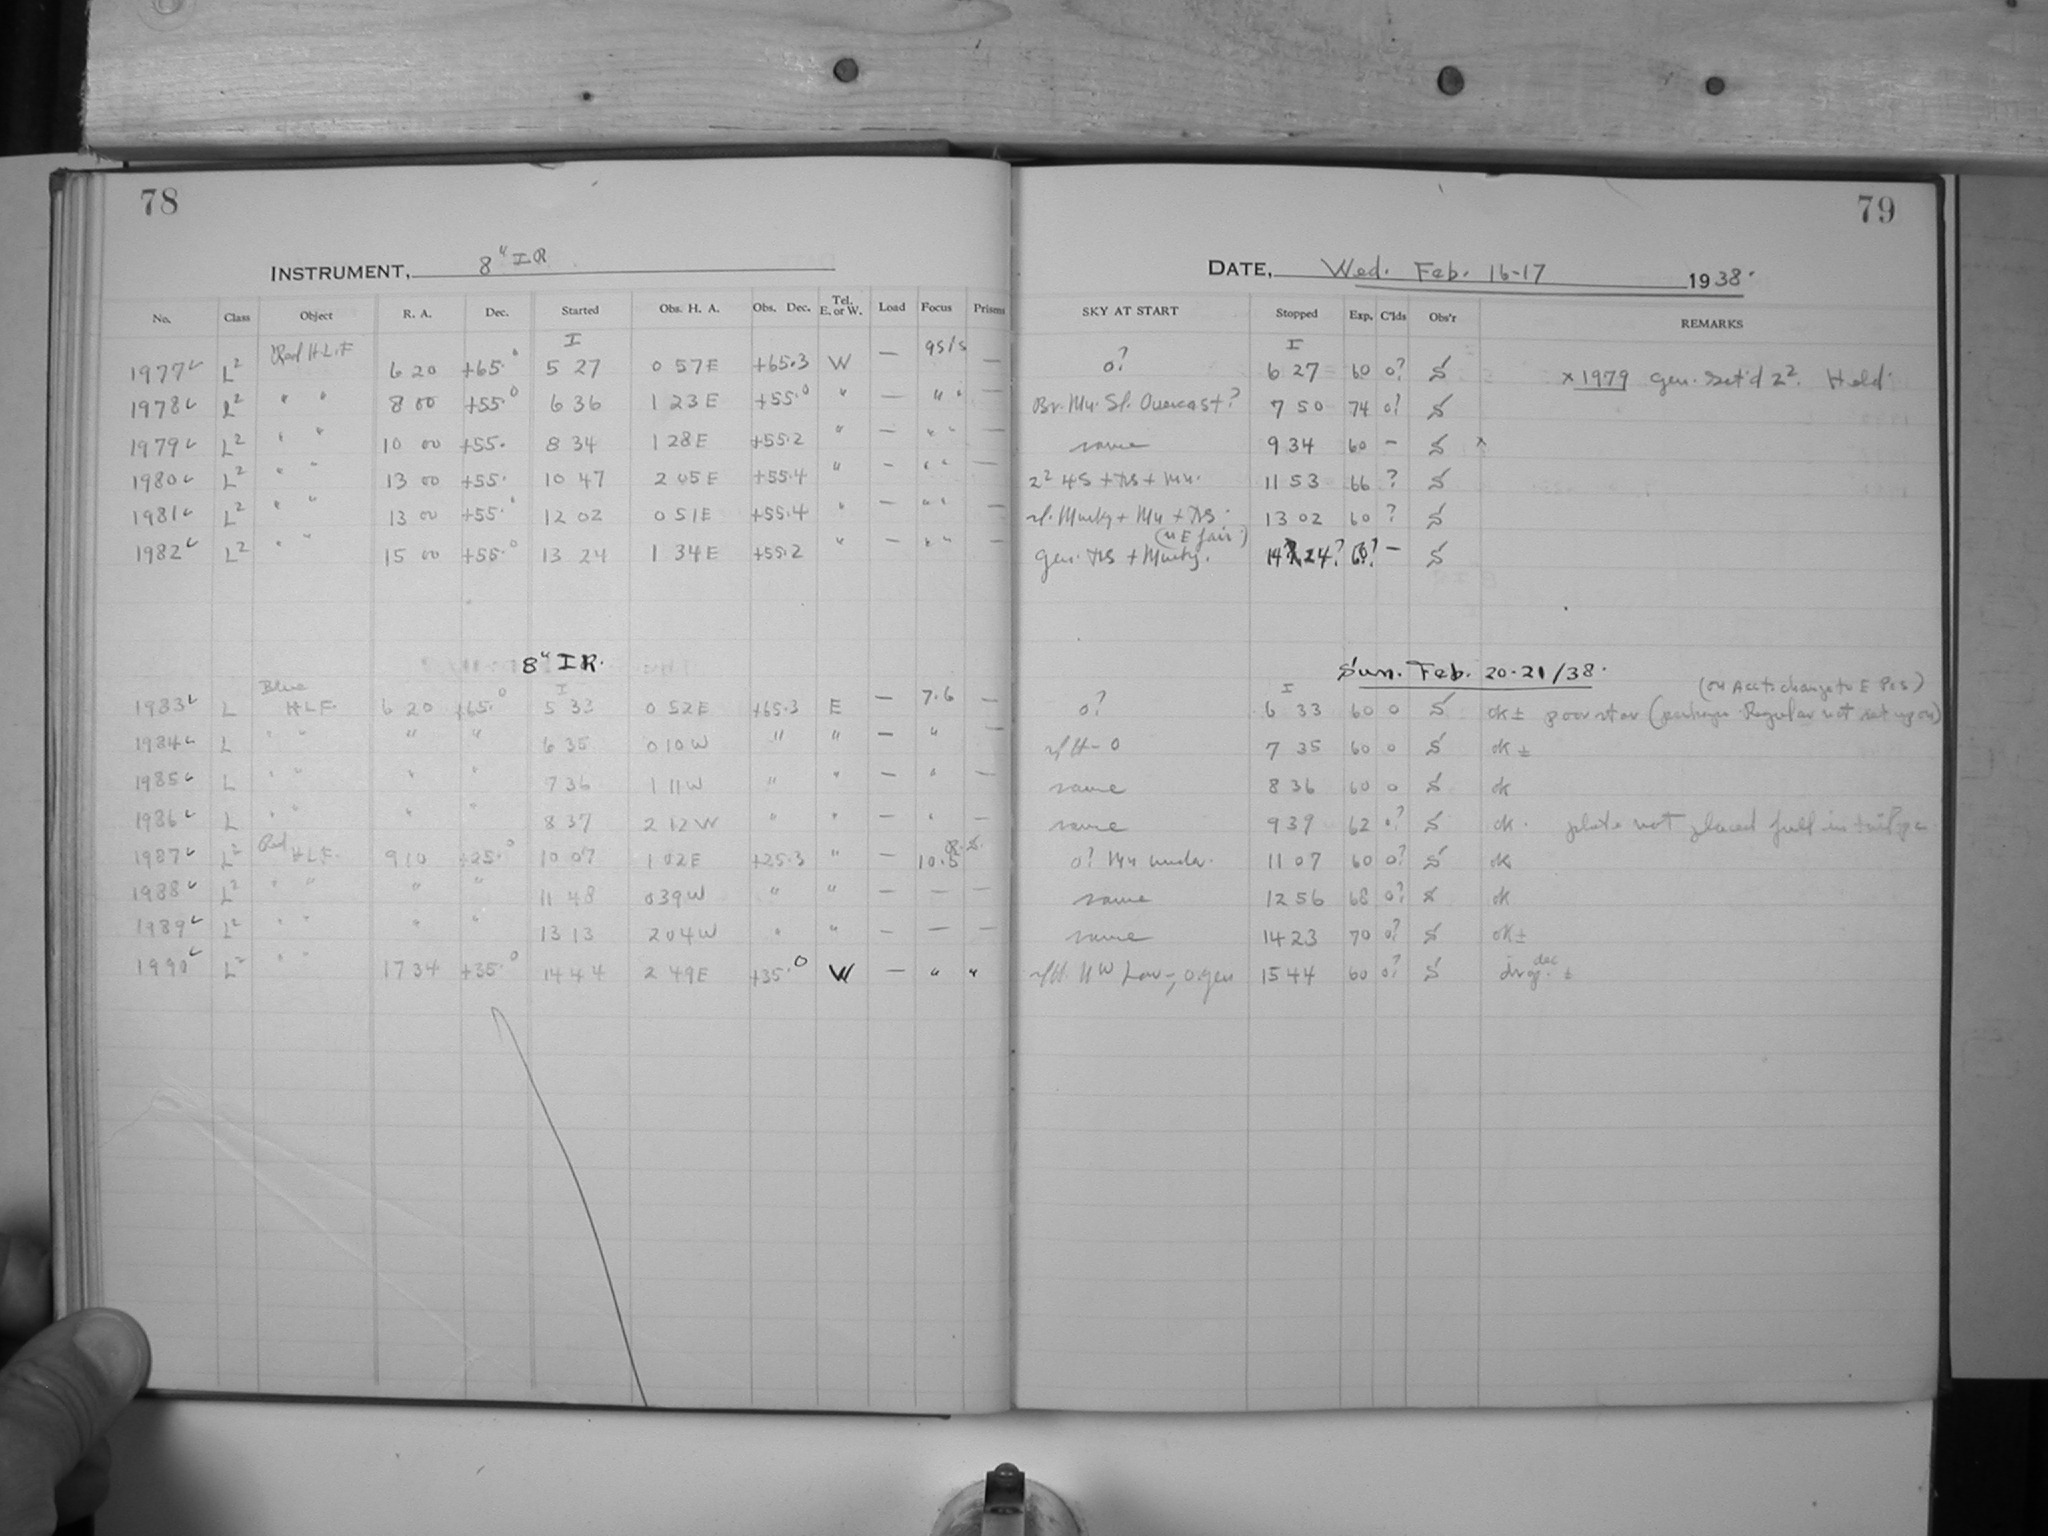 78
79
INSTRUMENT, 8" IR
DATE, Wed. Feb. 16-17 1938.
No. Class Object R. A. Dec. Started Obs. H. A. Obs. Dec. Tel. E. or W. Load Focus Prisms SKY AT START Stopped Exp. C'lds Obs'r REMARKS
I I
1977 L² Red H.L.F 6 20 +65.0 5 27 0 57E +65.3 W — — o? 6 27 60 0? S x 1979 gen. set'd 2². Held
1978 L² " " 8 00 +55.0 6 36 1 23E +55.0 " — " " — Br. Mn. Sl. Overcast? 7 50 74 0? S
1979 L² " " 10 00 +55. 8 34 1 28E +55.2 " — " " — same 9 34 60 — S x
1980 L² " " 13 00 +55. 10 47 2 05E +55.4 " — " " — 11 53 66 ? S
1981 L² " " 13 00 +55. 12 02 0 51E +55.4 " — " " — 13 02 60 ? S
(NE fair)
1982 L² " " 15 00 +55.0 13 24 1 34E +55.2 " — " " — 14 24? — S
8" IR. Sun. Feb. 20-21/38.
I I
1983 L Blue HLF. 6 20 +65.0 5 33 0 52E +65.3 E — 7.6 — o? 6 33 60 0 S ok ± poor star
1984 L " " " " 6 35 0 10W " " — " 7 35 60 0 S ok ±
1985 L " " " " 7 36 1 11W " " — " — same 8 36 60 0 S ok
1986 L " " " " 8 37 2 12W " " — " — same 9 39 62 0? S ok. plate not placed full in
1987 L² Red HLF. 9 10 +25.0 10 07 1 02E +25.3 " — 10.5 o? 11 07 60 0? S ok
1988 L² " " " " 11 48 0 39W " " — — — same 12 56 68 0? S ok
1989 L² " " " " 13 13 2 04W " " — — — same 14 23 70 0? S ok±
1990 L² " " 17 34 +35.0 14 44 2 49E +35.0 W — " " 15 44 60 0? S